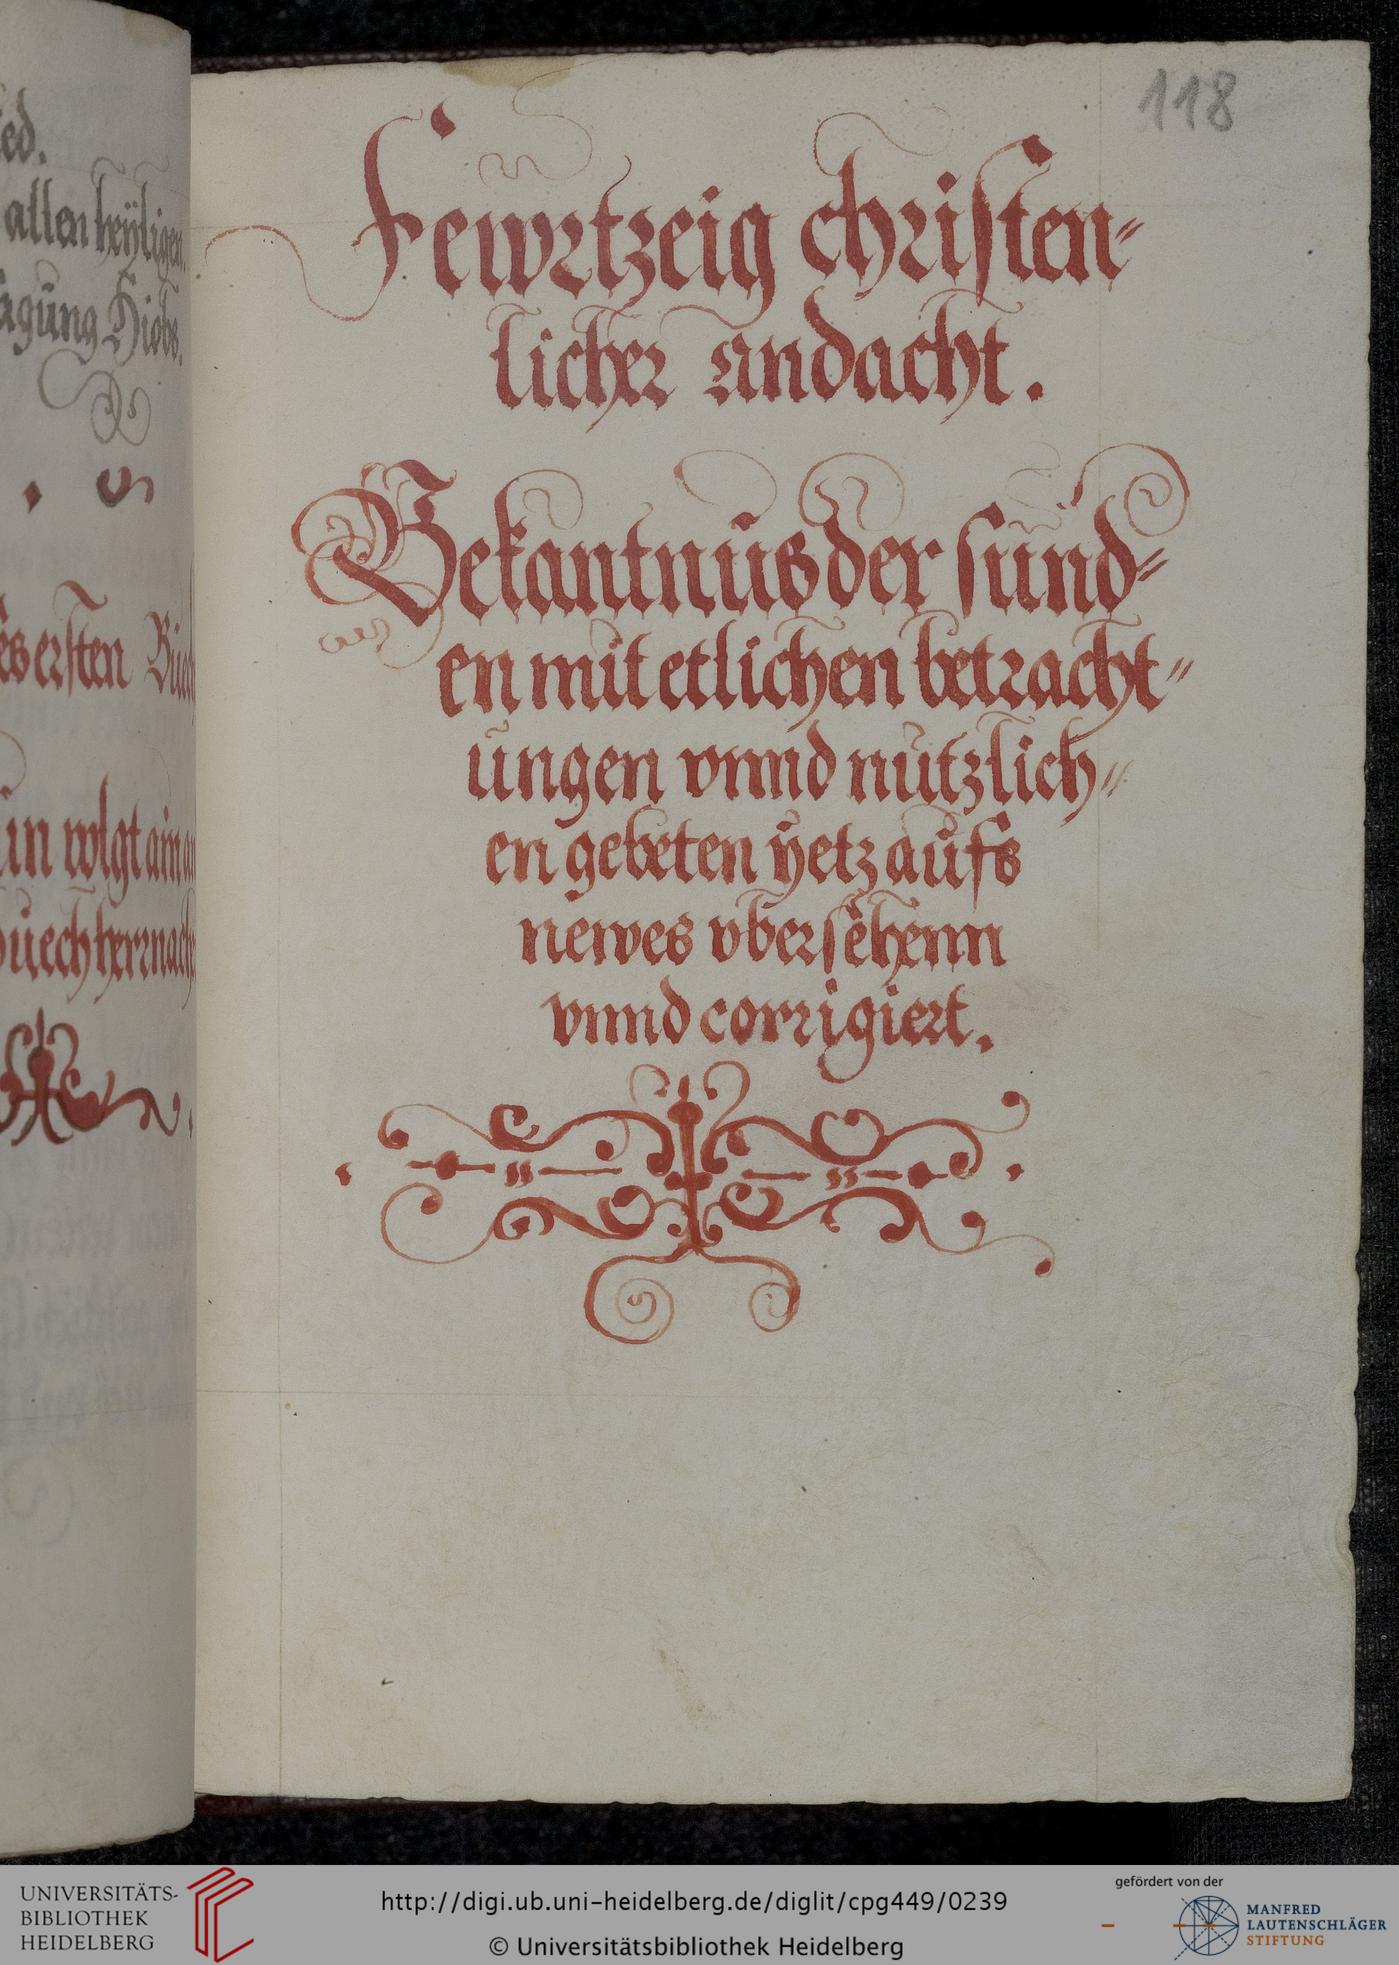 ed.
allen heÿligen.
agung Hiobs.
es ersten Buech
un volgt ain an
buech hernach
118
Fewrtzeig christen=
licher Andacht.
Bekantnüs der sünd=
en mit etlichen betracht=
ungen vnnd nützlich=
en gebeten ÿetz aufs
newes vbersehenn
vnnd corrigiert.
UNIVERSITÄTS-
BIBLIOTHEK
HEIDELBERG
http://digi.ub.uni-heidelberg.de/diglit/cpg449/0239
© Universitätsbibliothek Heidelberg
gefördert von der
MANFRED
LAUTENSCHLÄGER
STIFTUNG